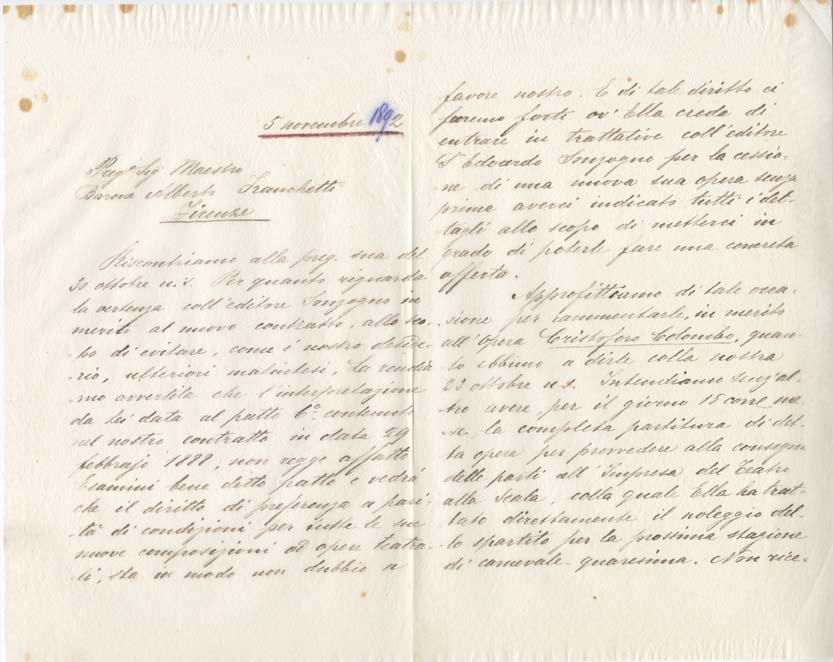 5 novembre 1892
Preg.º Sig Maestro
Barone Alberto Franchetti
Firenze
Riscontriamo alla preg. sua del
30 ottobre u.s. Per quanto riguarda
la vertenza coll'editore Sonzogno in
merito al nuovo contratto, allo sco-
-po di evitare, come è nostro deside-
-rio, ulteriori malintesi, La rendia-
mo avvertita che l'interpretazione
da Lei data al patto 6º contenuto
nel nostro contratto in data 29
febbrajo 1888, non regge affatto
Esamini bene detto patto e vedrà
che il diritto di preferenza a pari-
-tà di condizioni per tutte le sue
nuove composizioni od opere teatra-
-li, sta in modo non dubbio a
favore nostro. E di tale diritto ci
faremo forti ov'Ella creda di
entrare in trattative coll'editore
S. Edoardo Sonzogno per la cessio-
-ne di una nuova sua opera senza
prima averci indicato tutti i det-
-tagli allo scopo di metterci in
grado di poterle fare una concreta
offerta.
Approfittiamo di tale occa-
-sione per rammentarle, in merito
all'Opera Cristoforo Colombo, quan-
-to ebbimo a dirle colla nostra
23 ottobre u.s. Intendiamo senz'al-
-tro avere, per il giorno 15 corr.e me-
-se, la completa partitura di det-
-ta opera per provvedere alla consegna
delle parti all'Impresa del Teatro
alla Scala, colla quale Ella ha trat-
-tato direttamente il noleggio del-
-lo spartito per la prossima stagione
di carnevale-quaresima. Non rice-